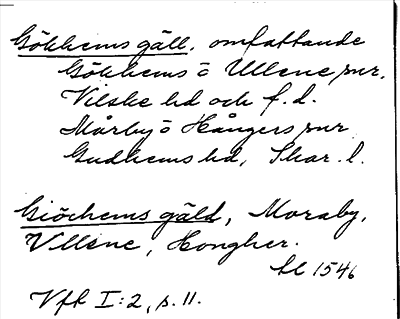 Gökhems gäll, omfattande
Gökhems o Ullene snr,
Vilske hd och f. d.
Mårby o Hångers snr
Gudhems hd, Skar. l.
Giöchems gäld, Moraby,
Vllene, Hongher.
hl 1546
Vfh I:2, s. 11.